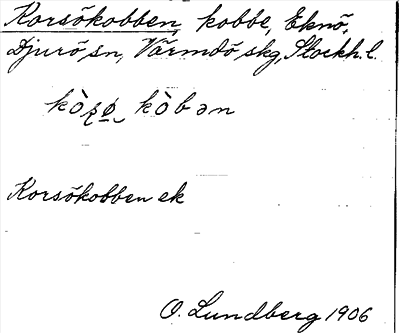 Korsökobben, kobbe, Eknö,
Djurö sn, Värmdö skg, Stockh. l.
kòʂø̱‿kòbən
Korsökobben ek
O. Lundberg 1906